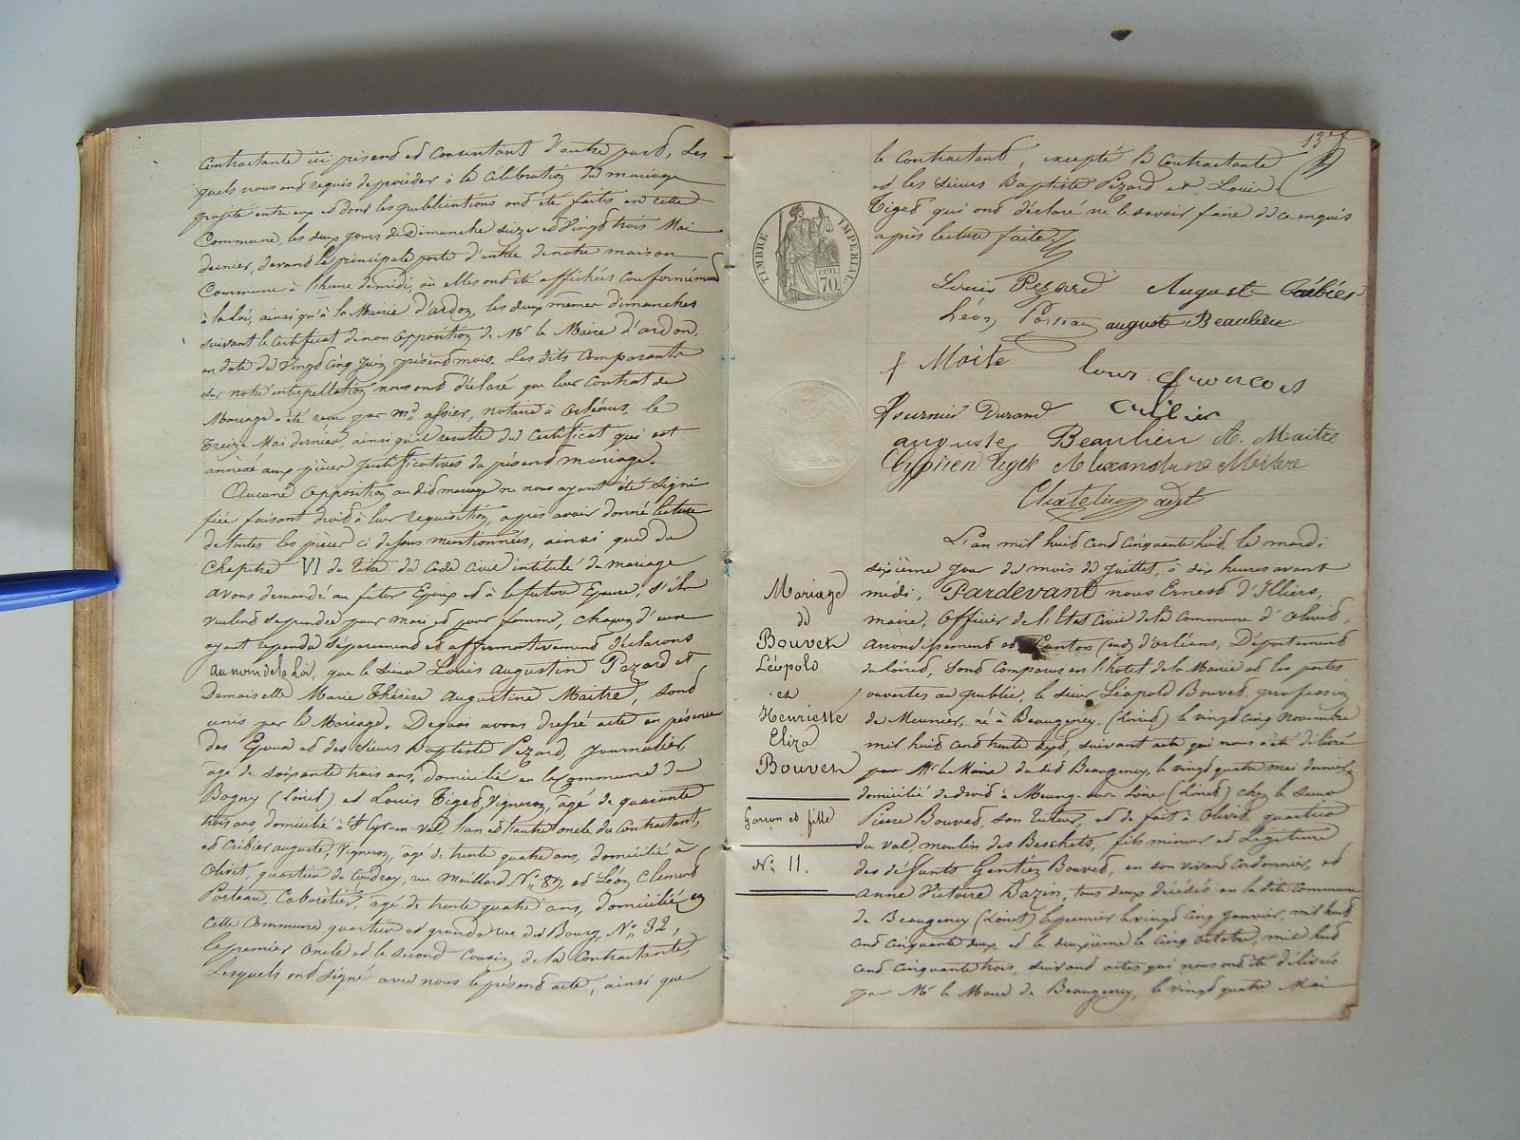 contractante ici présend et consentant d'autre pard, Les
quels nous ond requis de procéder à la célébration du mariage
projeté entre eux et dond les publications ond été faites en cette
Commune, les deux jours de dimanche seize et vingt trois Mai
dernier, devand la principale porte d'entrée de notre maison
Commune à l'heure de midi, où elles ond été affichées conformémend
à la loi, ainsi qu'à la Mairie d'ardon, les deux mêmes dimanches
suivant le certificat de non opposition de Mr le Maire d'ardon
en date du vingt cinq Juin présend mois. Les dits comparants
sur notre interpellation nous ond déclaré que leur contrat de
Mariage a été reçu par Me assier, notaire à Orléans, le
treize Mai dernier, ainsi qu'il résulte du certificat qui est
annexé aux pièces justificatives du présend mariage.
Aucune opposition au did mariage ne nous ayant été signi
fiée faisant droid à leur requisition, après avoir donné lecture
de toutes les pièces ci dessus mentionnées, ainsi que du
Chapitre VI du titre du Code Civil intitulé du mariage
avons demandé au futur Epoux et à la future Epouse, s'ils
veulend se prendre pour mari et pour femme, chacun d'eux
ayant répondu séparémend et affirmativemend déclarons
au nom de la loi, que le sieur Louis Augustin Pezard et
Demoiselle Marie Thérèse Augustine Maitre, sond
unis par le Mariage. Dequoi avons dressé acte en présence
des Epoux et des sieurs Baptiste Pezard, journalier,
agé de soixante trois ans, domicilié en la Commune de
Bagny (Loired) et Louis Tiged, Vigneron, âgé de quarante
trois ans, domicilié à St Cyr en val, l'un et l'autre oncle du contractant,
et Cribier auguste, vigneron, âgé de trente quatre ans, domicilié à
Olivet, quartier du Coudray, rue Maillard, No 87, et Léon Clémend
Porteau, Cabaretier, agé de trente quatre ans, domicilié en
cette Commune quartier et grande rue du Bourg, No 32,
le premier oncle et le second Cousin de la Contractante,
Lesquels ont signé avec nous le présend acte, ainsi que
13
le Contractand, excepté la Contractante
et les sieurs Baptiste Pezard et Louis
Tiged qui ond déclaré ne le savoir faire de ce enquis
après lecture faite.
TIMBRE IMPERIAL
70
Louis Pezard Auguste Cribier
Léon auguste Beaulieu
f Maite louis francois
Fournier Durand Cribier
auguste Beaulieu A. Maitre
Cyprien tiget Alexandrine Maitre
Chatelin adjt
L'an mil huid cend cinquante huid, le mardi
sixième jour du mois de juillet, à dix heures avant
midi, Pardevant nous Ernest d'Illiers,
maire, Officier de l'Etat Civil de la Commune d'Olivet,
arrondissement et Canton (sud) d'orléans, Département
du Loired, Sond Comparus en l'hotel de la Mairie et les portes
ouvertes au public, le sieur Léopold Bouved, profession
de Meunier, né à Beaugency, (Loired) le vingt cinq Novembre
mil huid cend trente sept, suivant acte qui nous a été délivré
par Mr le Maire du did Beaugency, le vingt quatre mai dernier
domicilié de droid à Meung-sur-Loire (Loired) chez le sieur
Pierre Bouved, son tuteur, et de fait à Olivet, quartier
du val, moulin des Béchets, fils mineur et légitime
des défunts Gentien Bouved, en son vivant Cordonnier, et
Anne Victoire Bazin, tous deux décédés en la dite Commune
de Beaugency (Loiret) le premier le vingt cinq Janvier, mil huid
cend cinquante deux et la deuxième le cinq octobre, mil huid
cend cinquante trois, suivand actes qui nous ond été délivrés
par Mr le Maire de Beaugency, le vingt quatre Mai
Mariage
de
Bouvet
Léopold
et
Henriette
Eliza
Bouvet
Garçon et fille
No 11.